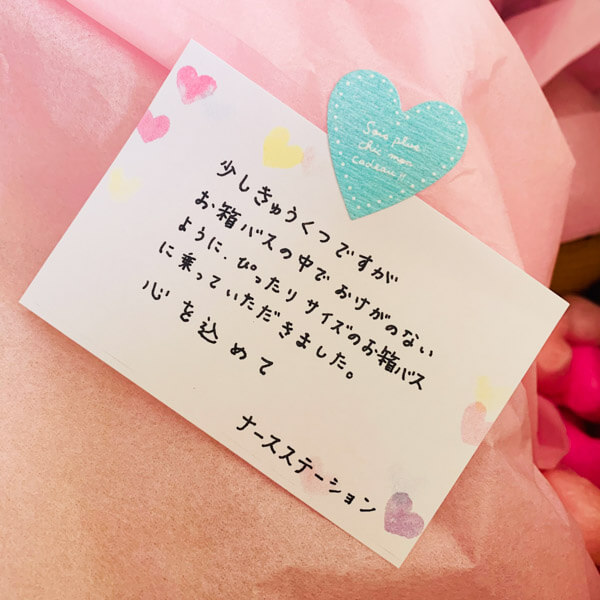 Sois plus
chic mon
cadeau!!
少しきゅうくつですが
お箱バスの中でおけがのない
ように、ぴったりサイズのお箱バス
に乗っていただきました。
心を込めて
ナースステーション